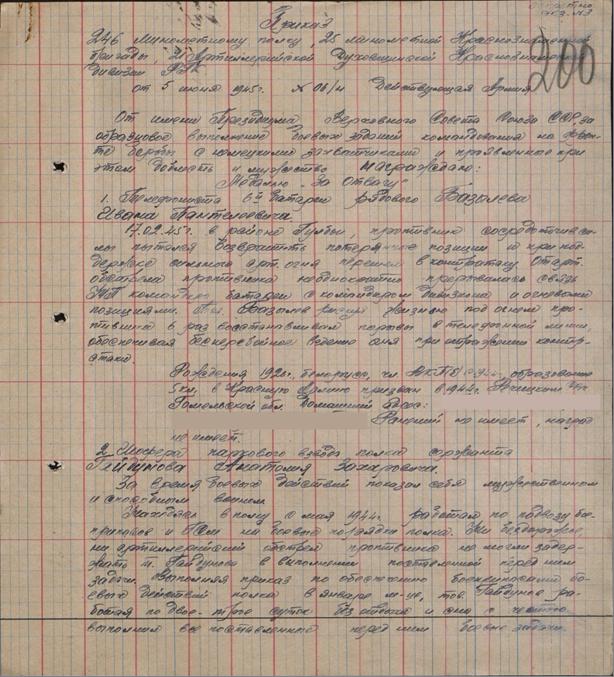 Секретно
экз. №3
200
Приказ
246 Минометному полку, 25 минометной Краснознаменной
бригады, 21 Артиллерийской Духовщинской Краснознаменной
дивизии РГК
от 5 июня 1945г. № 06/н Действующая Армия
От имени Президиума Верховного Совета Союза ССР за
образцовое выполнение боевых заданий командования на фрон-
те борьбы с немецкими захватчиками и проявленные при
этом доблесть и мужество награждаю:
Медалью "За Отвагу"
1. Телефониста 6й батареи рядового
Ивана Пантелеевича
17.02.45г. в районе противник сосредоточив
пытался возвратить потерянные позиции и при под-
держке сильного арт. огня перешел в контратаку. От арт.
обстрела противника неоднократно прерывалась связь
командира батареи с командиром дивизиона и огневыми
позициями. Тов. рискуя жизнью под огнем про-
тивника 6 раз восстанавливал порывы в телефонной линии,
обеспечивая бесперебойное ведение огня при отражении контр-
атаки.
Рождения 192 г. белорус, чл. образование
5 кл. в Красную Армию призван в 1944г. Речицким
Гомельской обл. Домашний адрес:
Ранений не имеет, наград
не имеет.
2. Шофера паркового взвода полка сержанта
Анатолия Захаровича.
За время боевых действий показал себя мужественным
и способным воином
Находясь в полку с мая 1944г. работал по подвозу бое-
припасов и ГСМ на боевые порядки полка. Ни бездорожье,
ни артиллерийский обстрел противника не могли задер-
жать т. Гайдукова в выполнении поставленной перед ним
задачи. Выполняя приказ по обеспечению боеприпасами бо-
евых действий полка в январе м-це, тов. Гайдуков ра-
ботая по двое-трое суток без отдыха и сна с честью
выполнил все поставленные перед ним боевые задачи.